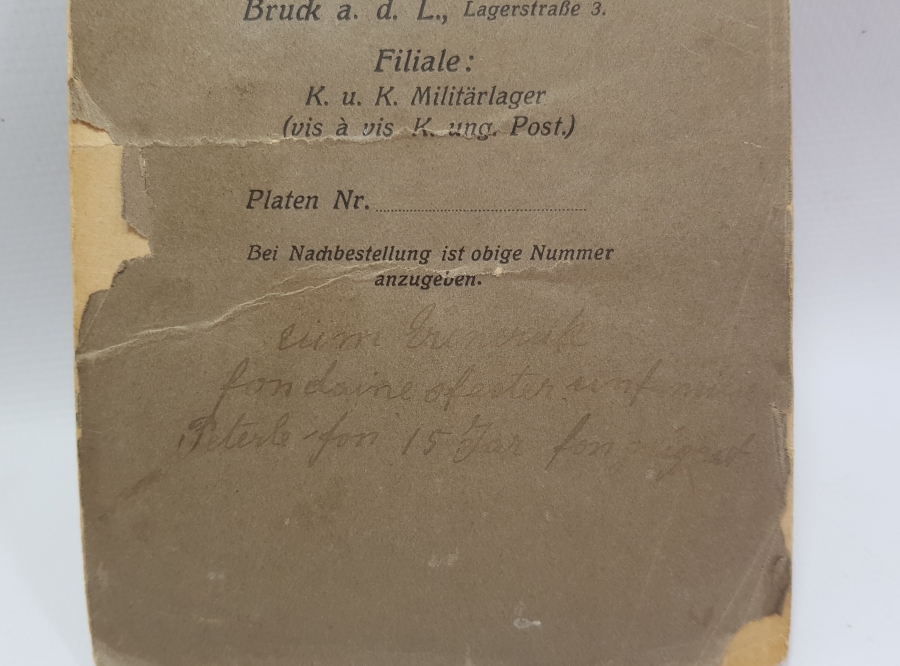 Bruck a. d. L., Lagerstraße 3.
Filiale:
K. u. K. Militärlager
(vis à vis K. ung. Post.)
Platen Nr.
Bei Nachbestellung ist obige Nummer
anzugeben.
zum
fon daine
Peterle fon 15 Jar fon